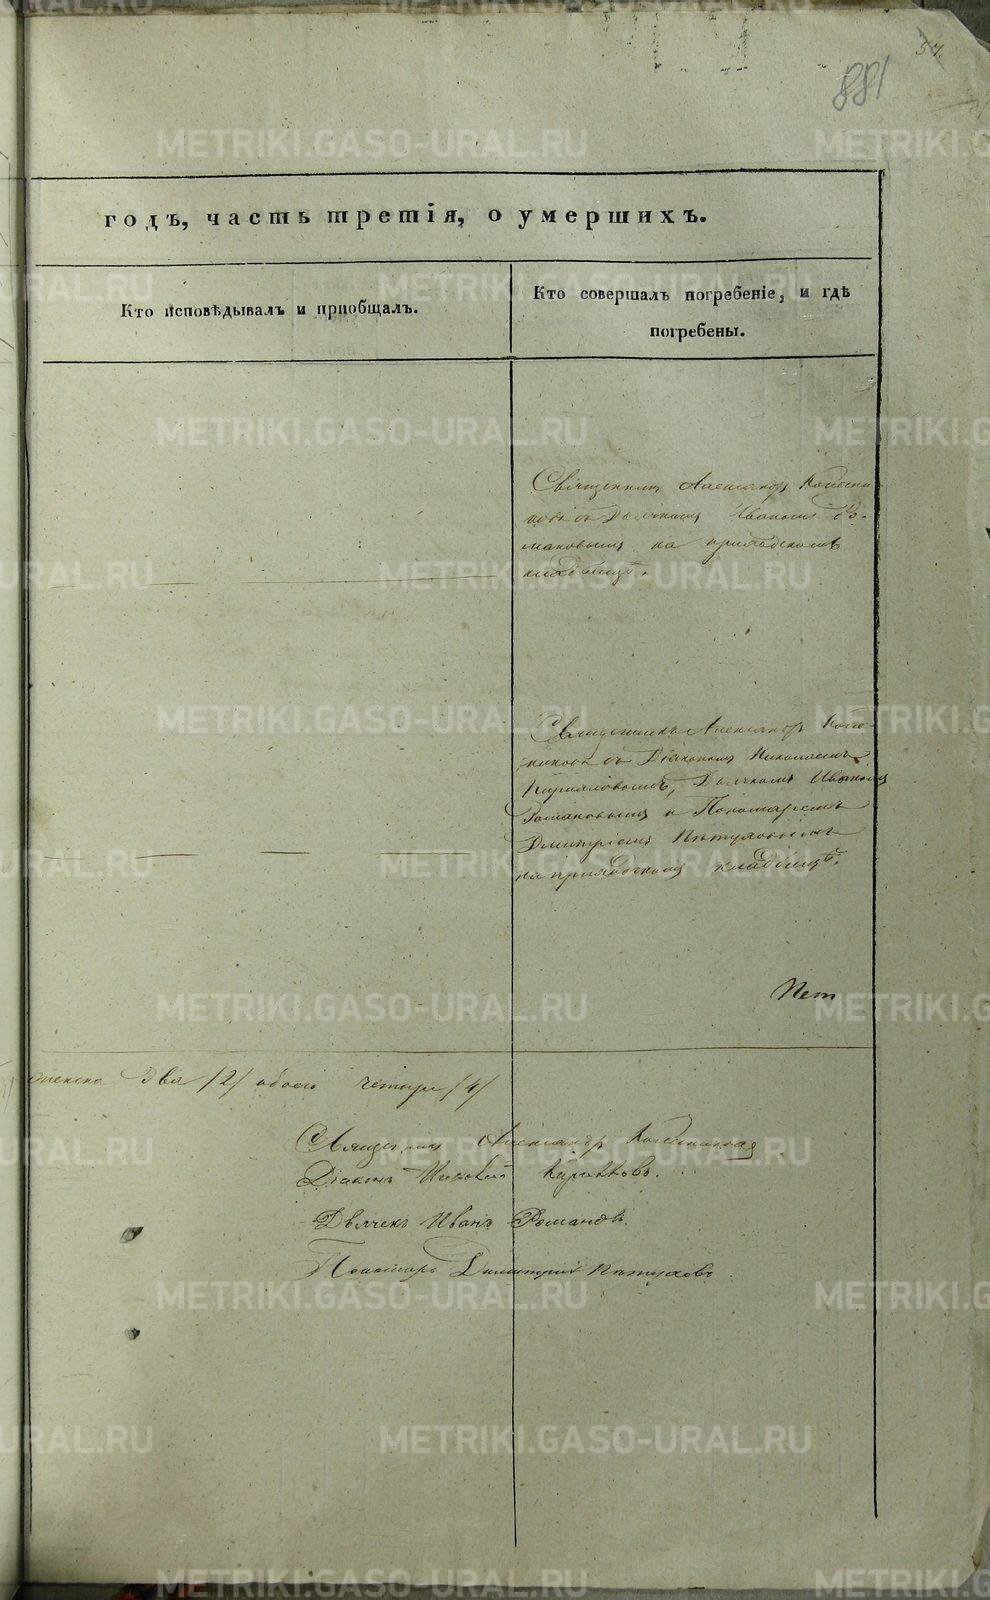 57.
881
годъ, часть третія, о умершихъ.
Кто исповѣдывалъ и пріобщалъ.
Кто совершалъ погребеніе, и гдѣ
погребены.
Священникъ Александръ
съ Дьячкомъ Иваномъ Ро-
мановымъ на приходскомъ
кладбищѣ.
Священникъ Александръ
съ Діакономъ Николаемъ
Кирилловымъ, Дьячкомъ Иваномъ
Романовымъ и Пономаремъ
Димитріемъ Пѣтуховымъ
на приходскомъ кладбищѣ.
Нет
женска два /2/ обоего четыре /4/
Священникъ Александръ
Діаконъ Николай Кирилловъ.
Дьячекъ Иванъ Романовъ
Пономарь Димитрій Пѣтуховъ
METRIKI.GASO-URAL.RU